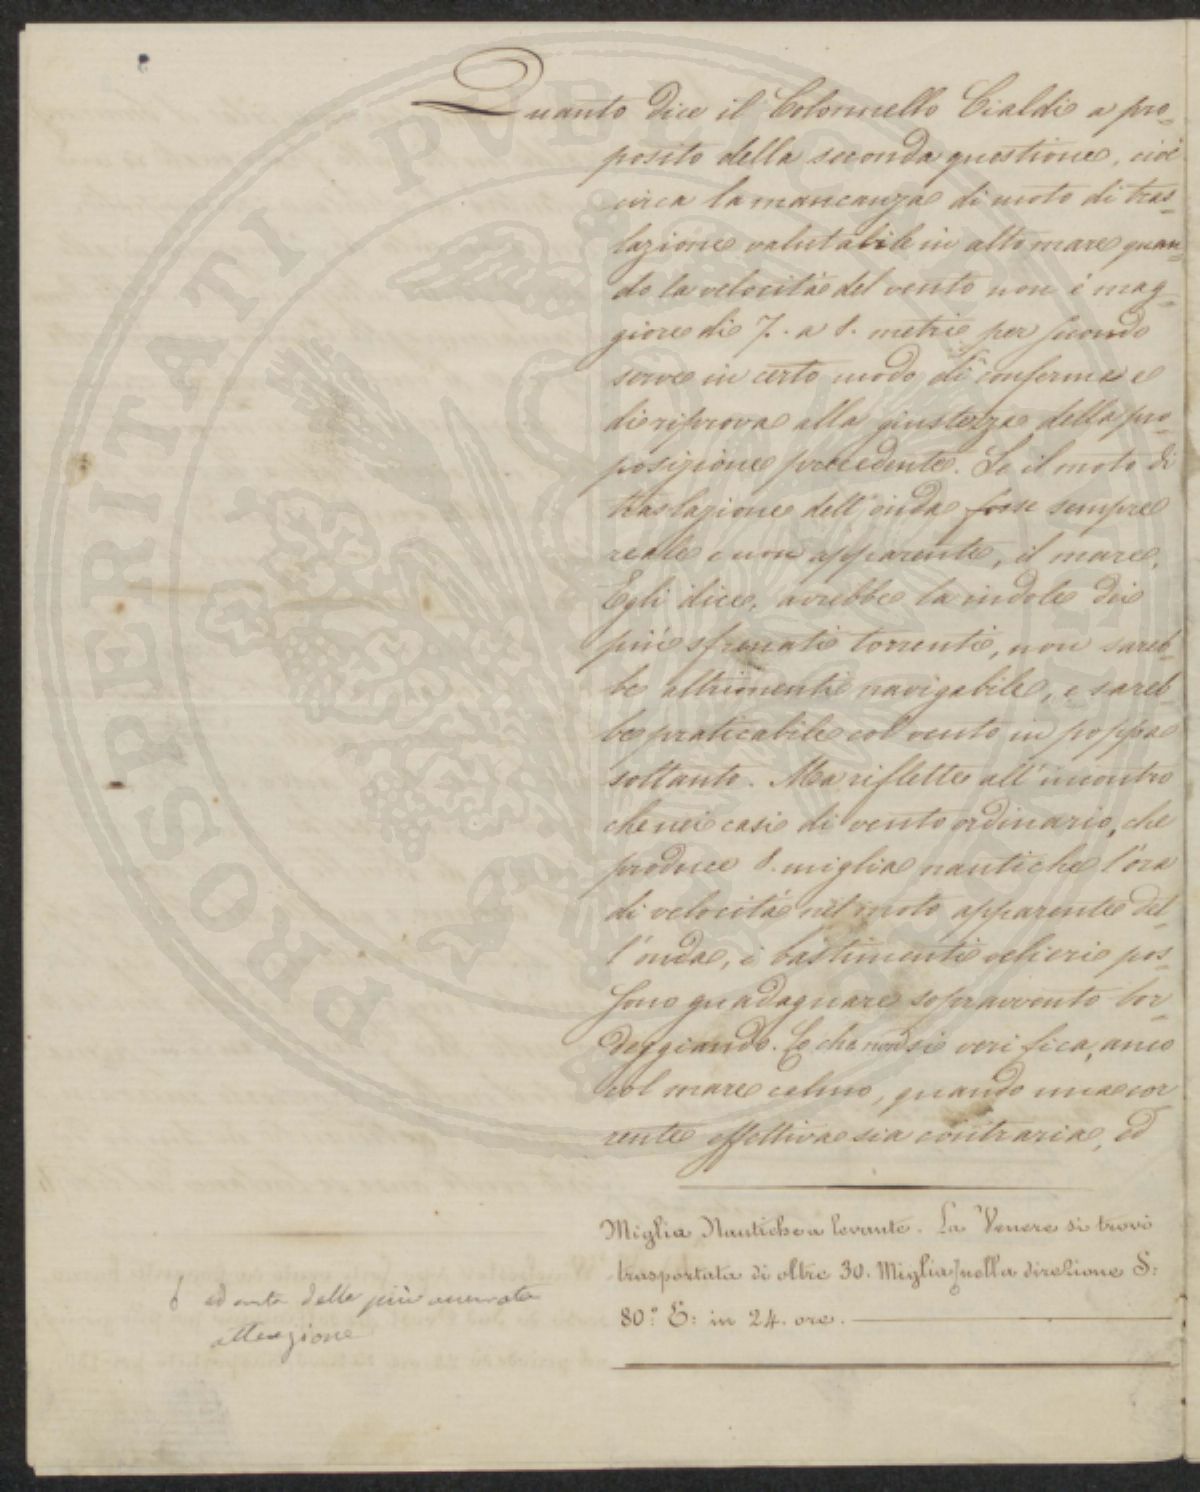 Quanto dice il Colonnello Cialdi a pro-
posito della seconda questione, cioè
circa la mancanza di moto di tras-
lazione valutabile in alto mare quan-
do la velocità del vento non è mag-
giore di 7. a 8. metri per secondo
serve in certo modo di conferma e
di riprova alla giustezza della pro-
posizione precedente. Se il moto di
traslazione dell'onda fosse sempre
reale e non apparente, il mare,
Egli dice, avrebbe la indole dei
più sfrenati torrenti, non sareb-
be altrimenti navigabile, e sareb-
be praticabile col vento in poppa
soltanto. Ma riflette all'incontro
che nei casi di vento ordinario, che
produce 8. miglia nautiche l'ora
di velocità nel moto apparente del-
l'onda, i bastimenti velieri pos-
sono guadagnare sopravvento bor-
deggiando. Lo che non si verifica, anco
col mare calmo, quando una cor-
rente effettiva sia contraria, ed
Miglia Nautiche a levante. La Venere si trovò
trasportata di oltre 30. Miglia nella direzione S:
80.° E: in 24. ore.
ed della più accurata
attenzione
PROSPERITATI PVBLICAE